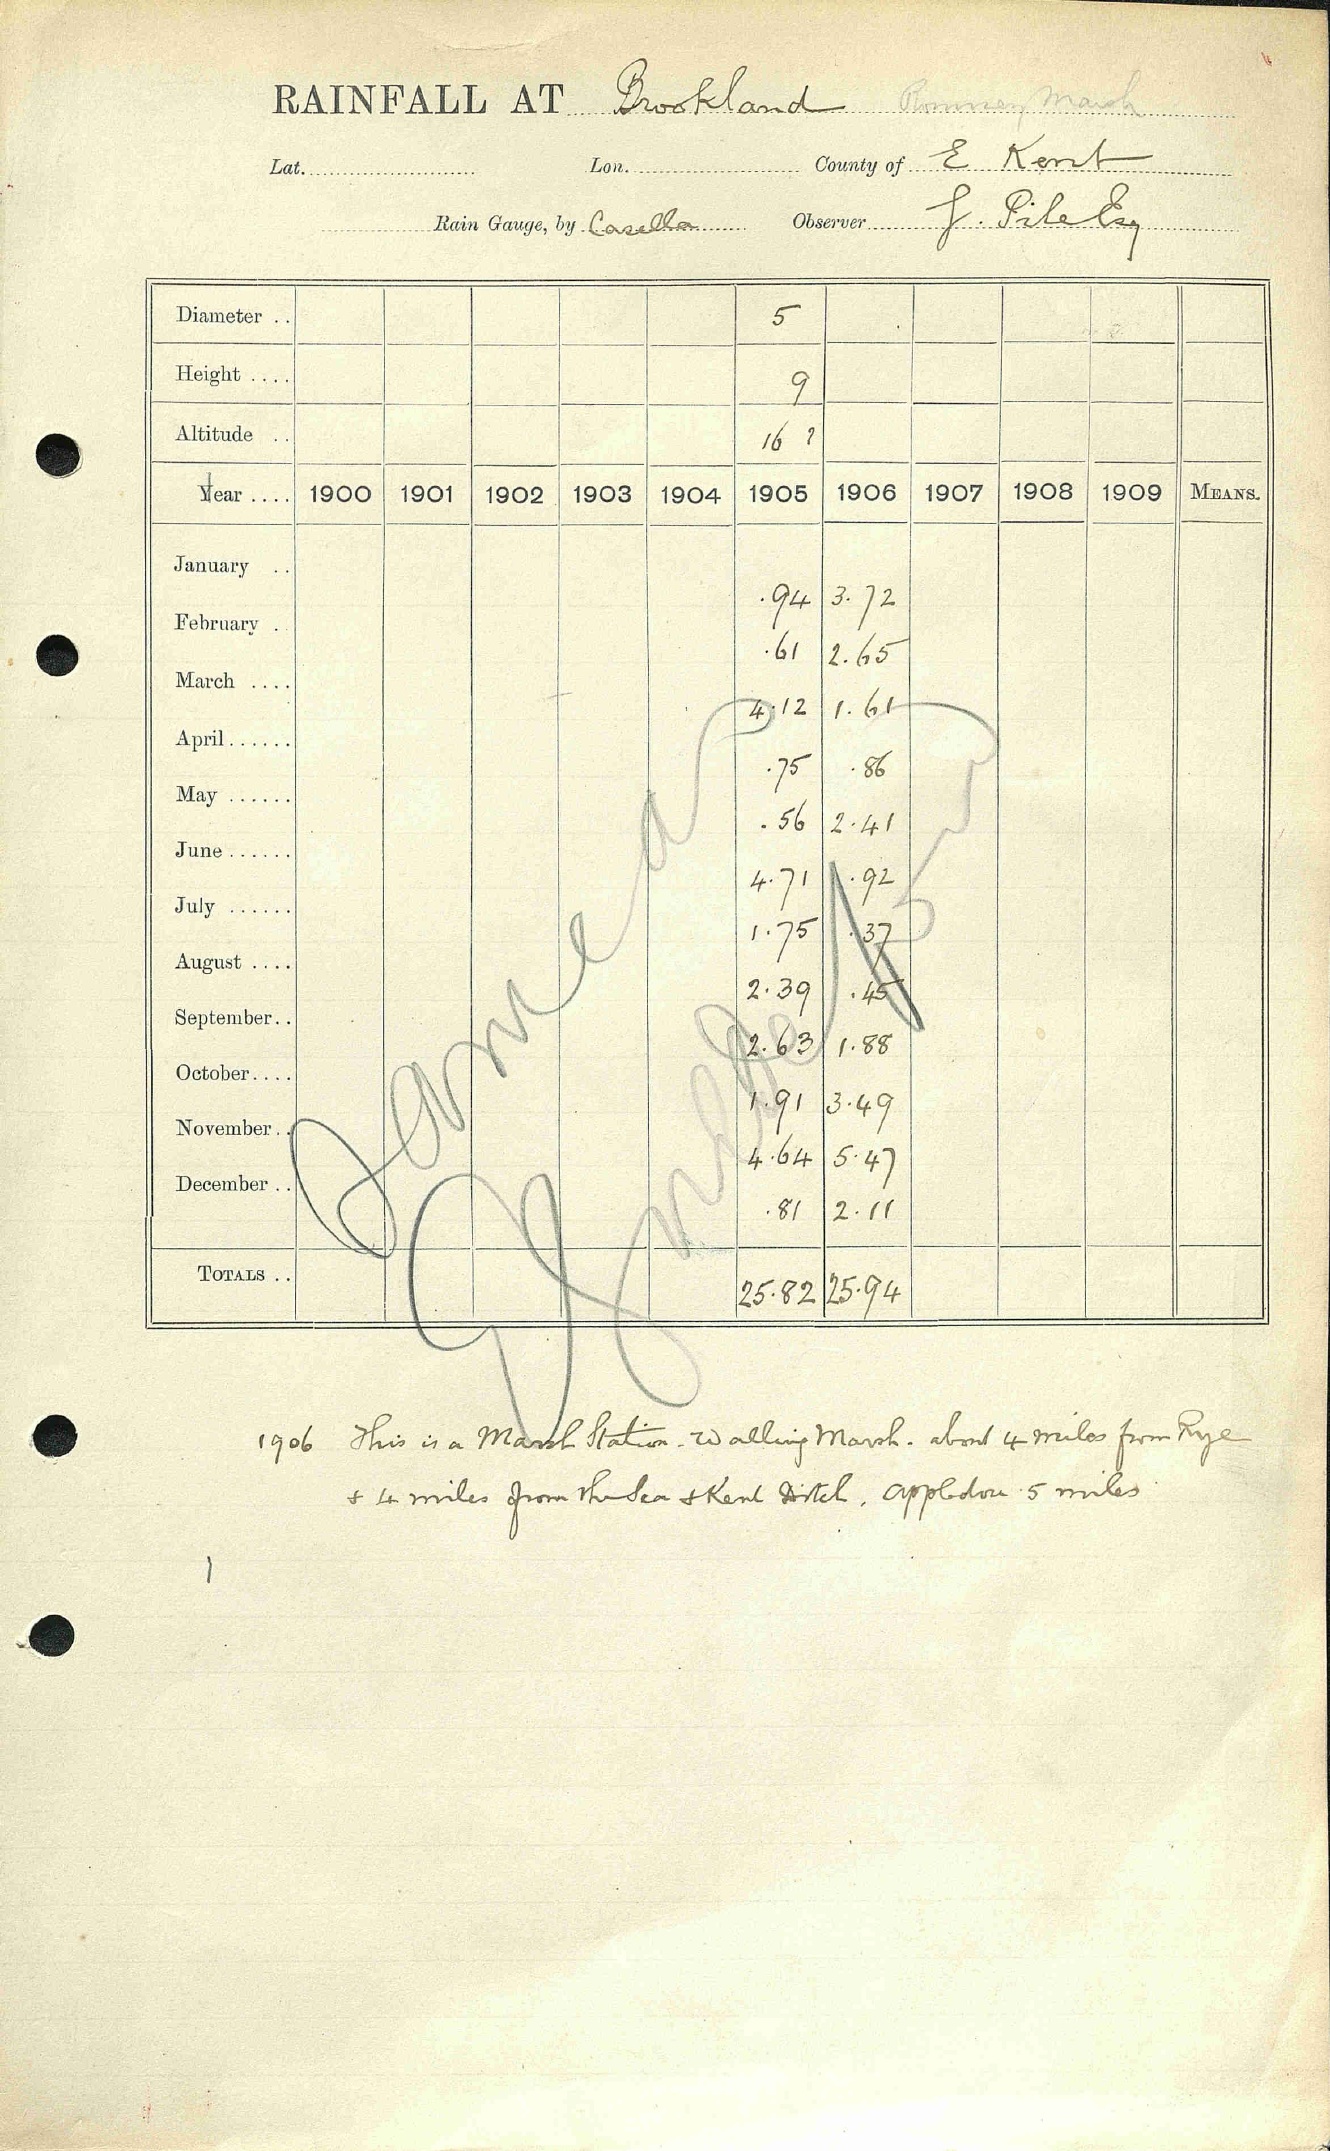 RAINFALL AT Brookland Romney Marsh
Lat. Lon. County of E Kent
Rain Gauge, by Casella Observer J. Pile Esq
Diameter .. 5
Height .... 9
Altitude .. 16 ?
Year .... 1900 1901 1902 1903 1904 1905 1906 1907 1908 1909 MEANS.
January .. .94 3.72
February . .61 2.65
March .... 4.12 1.61
April...... .75 .86
May ...... .56 2.41
June...... 4.71 .92
July ...... 1.75 .37
August .... 2.39 .45
September.. 2.63 1.88
October.... 1.91 3.49
November.. 4.64 5.47
December .. .81 2.11
TOTALS .. 25.82 25.94
James
1906 This is a Marsh Station. Walling Marsh. about 4 miles from Rye
& 4 miles from the Sea & Kent Ditch, Appledore 5 miles